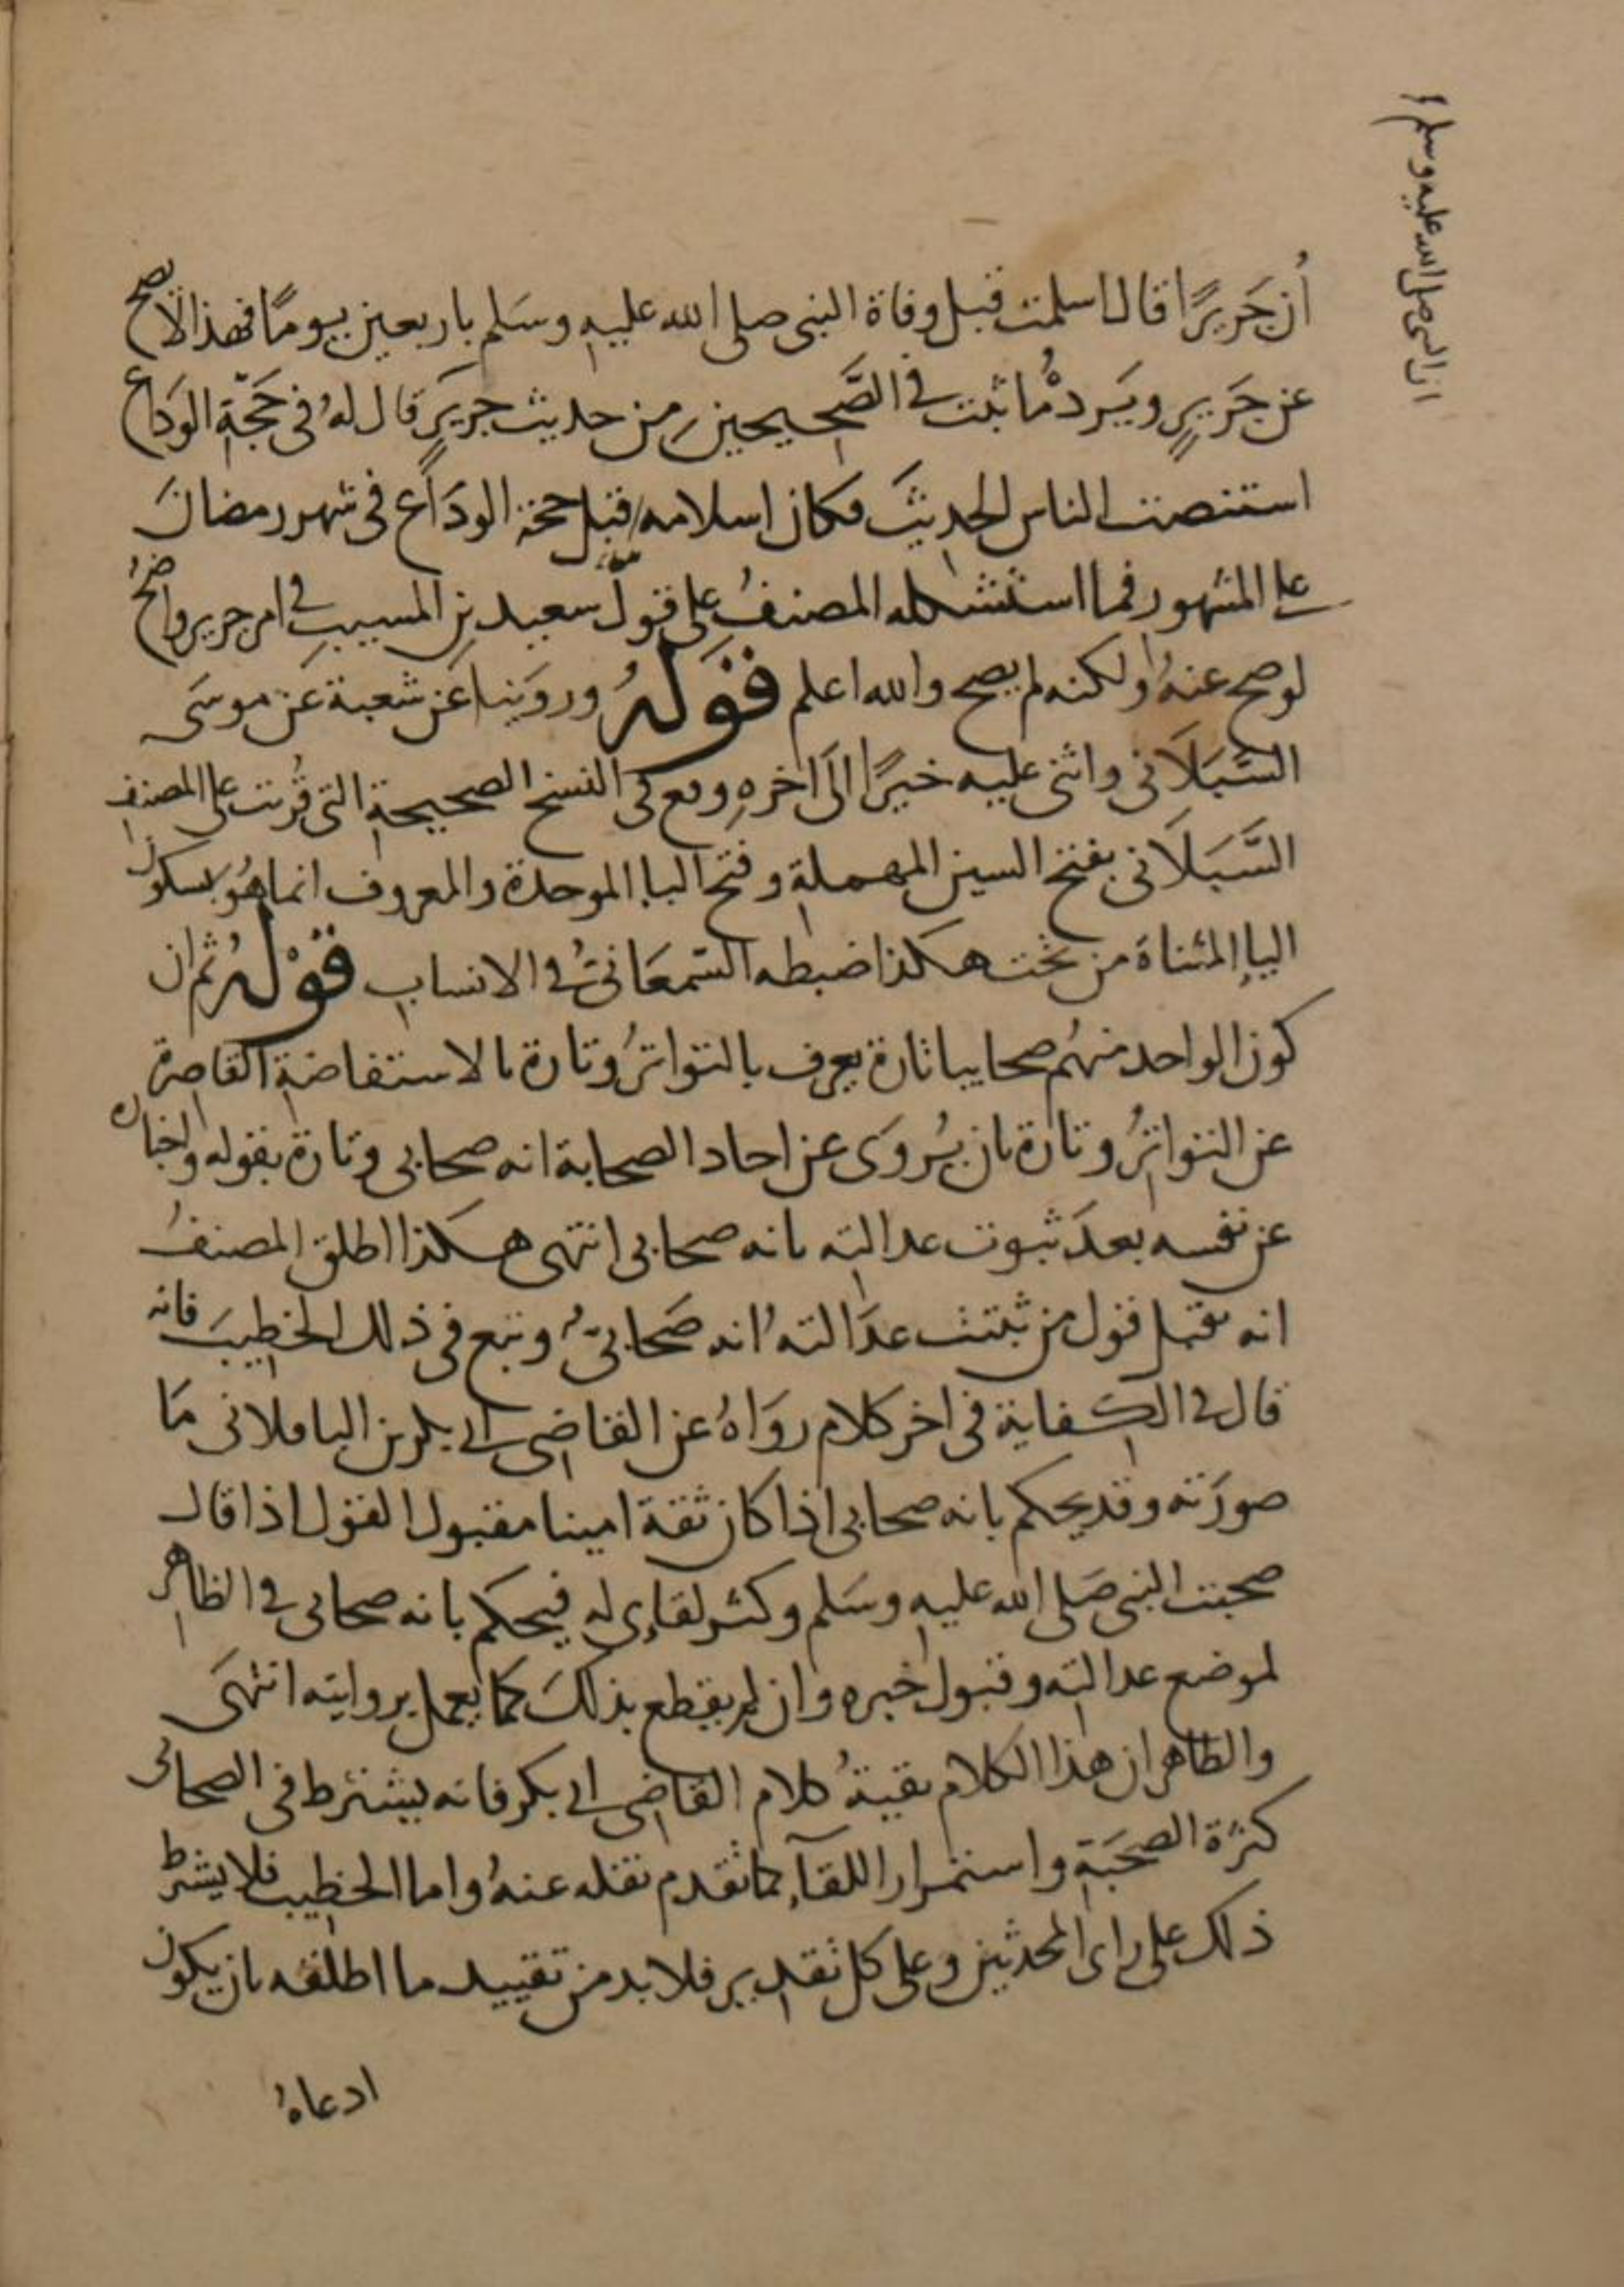 ان النبي صلى الله عليه وسلم
أن جَريرًا قال اسلمت قبل وفاة النبي صلى الله عليه وسَلم باربعين يومًا فهذا لا يصح
عن جَريرٍ ويَرده ما ثبت في الصَّحيحين من حديث جريرٍ قال له في حَجّة الودَاع
استنصت الناس الحديثَ فكان اسلامه قبل حجة الودَاع في شهر رمضان
على المشهور فما استشكله المصنفُ على قول سعيد بن المسيب في امر جرير واضحُ
لو صح عنهُ ولكنه لم يصح والله اعلم قَوْلهُ وروَينا عَن شعبة عَن موسَى
السَّبَلاَني واثنى عليه خيرًا الَى اخرهِ وقع في النسخ الصحيحة التي قُرئت على المصنف
السَّبَلاَني بفتح السين المهملة وفتح البا الموحدة والمعروف انما هُوَ بسكون
اليا المثناة من تحت هكذا ضبطه السّمعَاني في الانساب قَوْلهُ ثم ان
كون الواحد منهُم صحابيا تارة يعرف بالتواترُ وتارة بالاستفاضة القاصرة
عن التواترُ وتارة بان يُروَى عن احاد الصحابة انه صحابي وتارة بقوله واخباره
عن نفسه بعدَ ثبوت عدالته بانه صحابي انتهى هكذا اطلق المصنفُ
انه يقبل قول من ثبتت عدَالتهُ انه صَحابيُّ وتبع في ذلك الخطيبَ فانه
قال في الكفاية في اخر كلام روَاهُ عن القاضي ابي بكر بن الباقلاني مَا
صورَته وقد يحكم بانه صحابي اذا كان ثقة امينا مقبول القول اذا قال
صحبت النبي صَلى الله عليه وسَلم وكثر لقاءي له فيحكم بانه صحابي في الظاهر
لموضع عدالته وقبول خبره وان لم يقطع بذلكَ كما يعمل بروايته انتهَى
والظاهر ان هذا الكلام بقيةُ كلام القاضي ابي بكر فانه يشترط في الصحابي
كثرة الصحَبة واستمرار اللقآء كما تقدم نقله عنهُ واما الخطيب فلا يشترط
ذلك على راى المحدثين وعلى كل تقدير فلا بد من تقييد ما اطلقه بان يكون
ادعاهُ